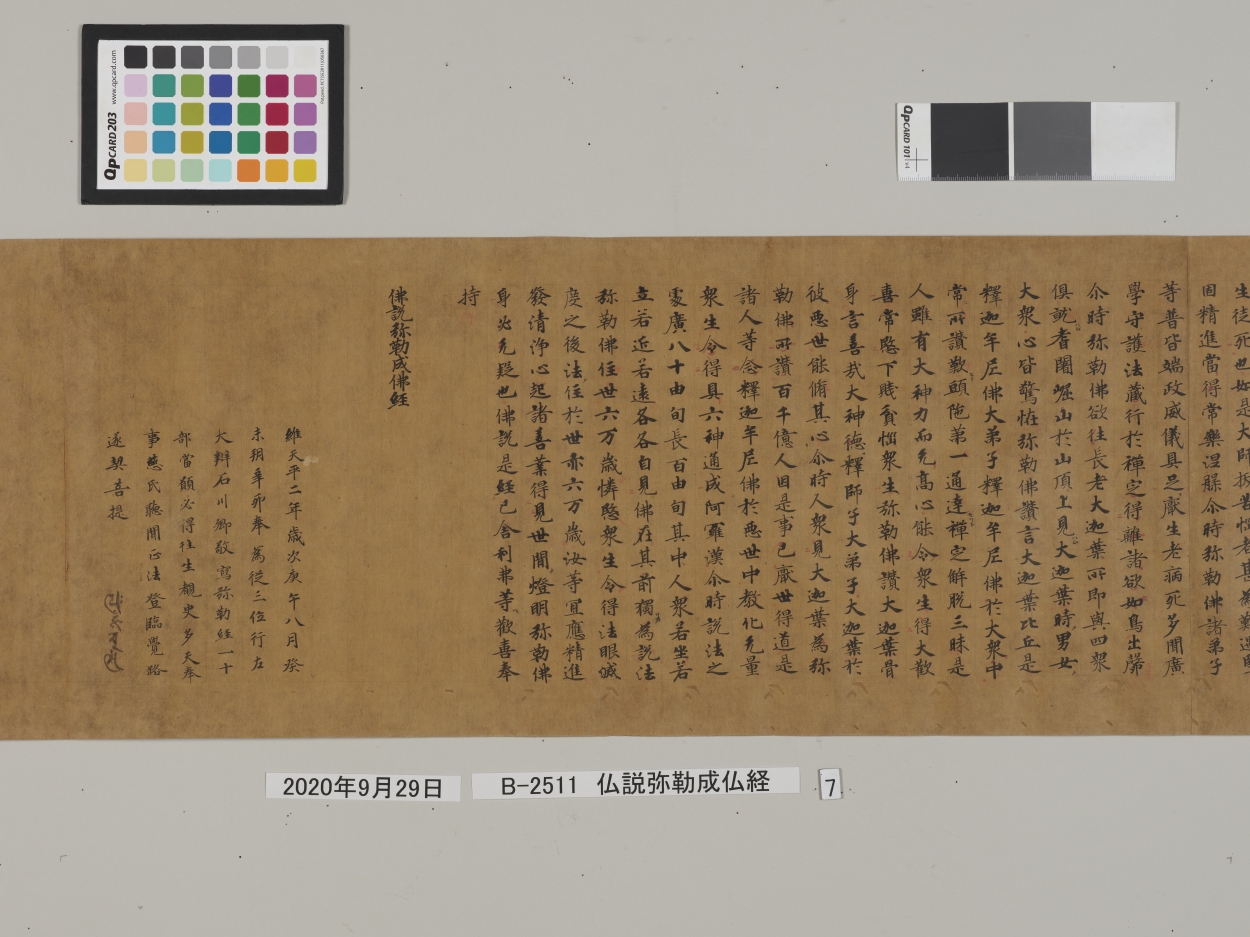 生徒死也如是大師拔苦惱者其為
因精進當得常樂涅槃尒時弥勒佛諸弟子
等普皆端政威儀具足猒生老病死多聞廣
學守護法藏行於禪定得離諸欲如鳥出㲉
尒時弥勒佛欲往長老大迦葉所即與四衆
俱就耆闍崛山於山頂上見大迦葉時男女
大衆心皆驚恠弥勒佛讚言大迦葉比丘是
釋迦牟尼佛大弟子釋迦牟尼佛於大衆中
常所讚歎頭陁第一通達禪定解脫三昧是
人雖有大神力而无高心能令衆生得大歡
喜常愍下賤貧惱衆生弥勒佛讚大迦葉骨
身言善哉大神德釋師子大弟子大迦葉於
彼惡世能脩其心尒時人衆見大迦葉為弥
勒佛所讚百千億人因是事已猒世得道是
諸人等念釋迦牟尼佛於惡世中教化无量
衆生令得具六神通成阿羅漢尒時說法之
處廣八十由旬長百由旬其中人衆若坐若
立若近若遠各各自見佛在其前獨為說法
弥勒佛住世六万歲憐愍衆生令得法眼滅
度之後法住於世亦六万歲汝等宜應精進
發清淨心起諸善業得見世間燈明弥勒佛
身必无疑也佛說是經已舍利弗等歡喜奉
持
佛說弥勒成佛經
維天平二年歲次庚午八月癸
未朔辛卯奉為從三位行左
大辯石川卿敬寫弥勒經一十
部當願必得往生覩史多天奉
事慈氏聽聞正法登臨覺路
遂契菩提
QpCARD 203
www.qpcard.com
QpCARD 101
2020年9月29日
B-2511 仏説弥勒成仏経
7